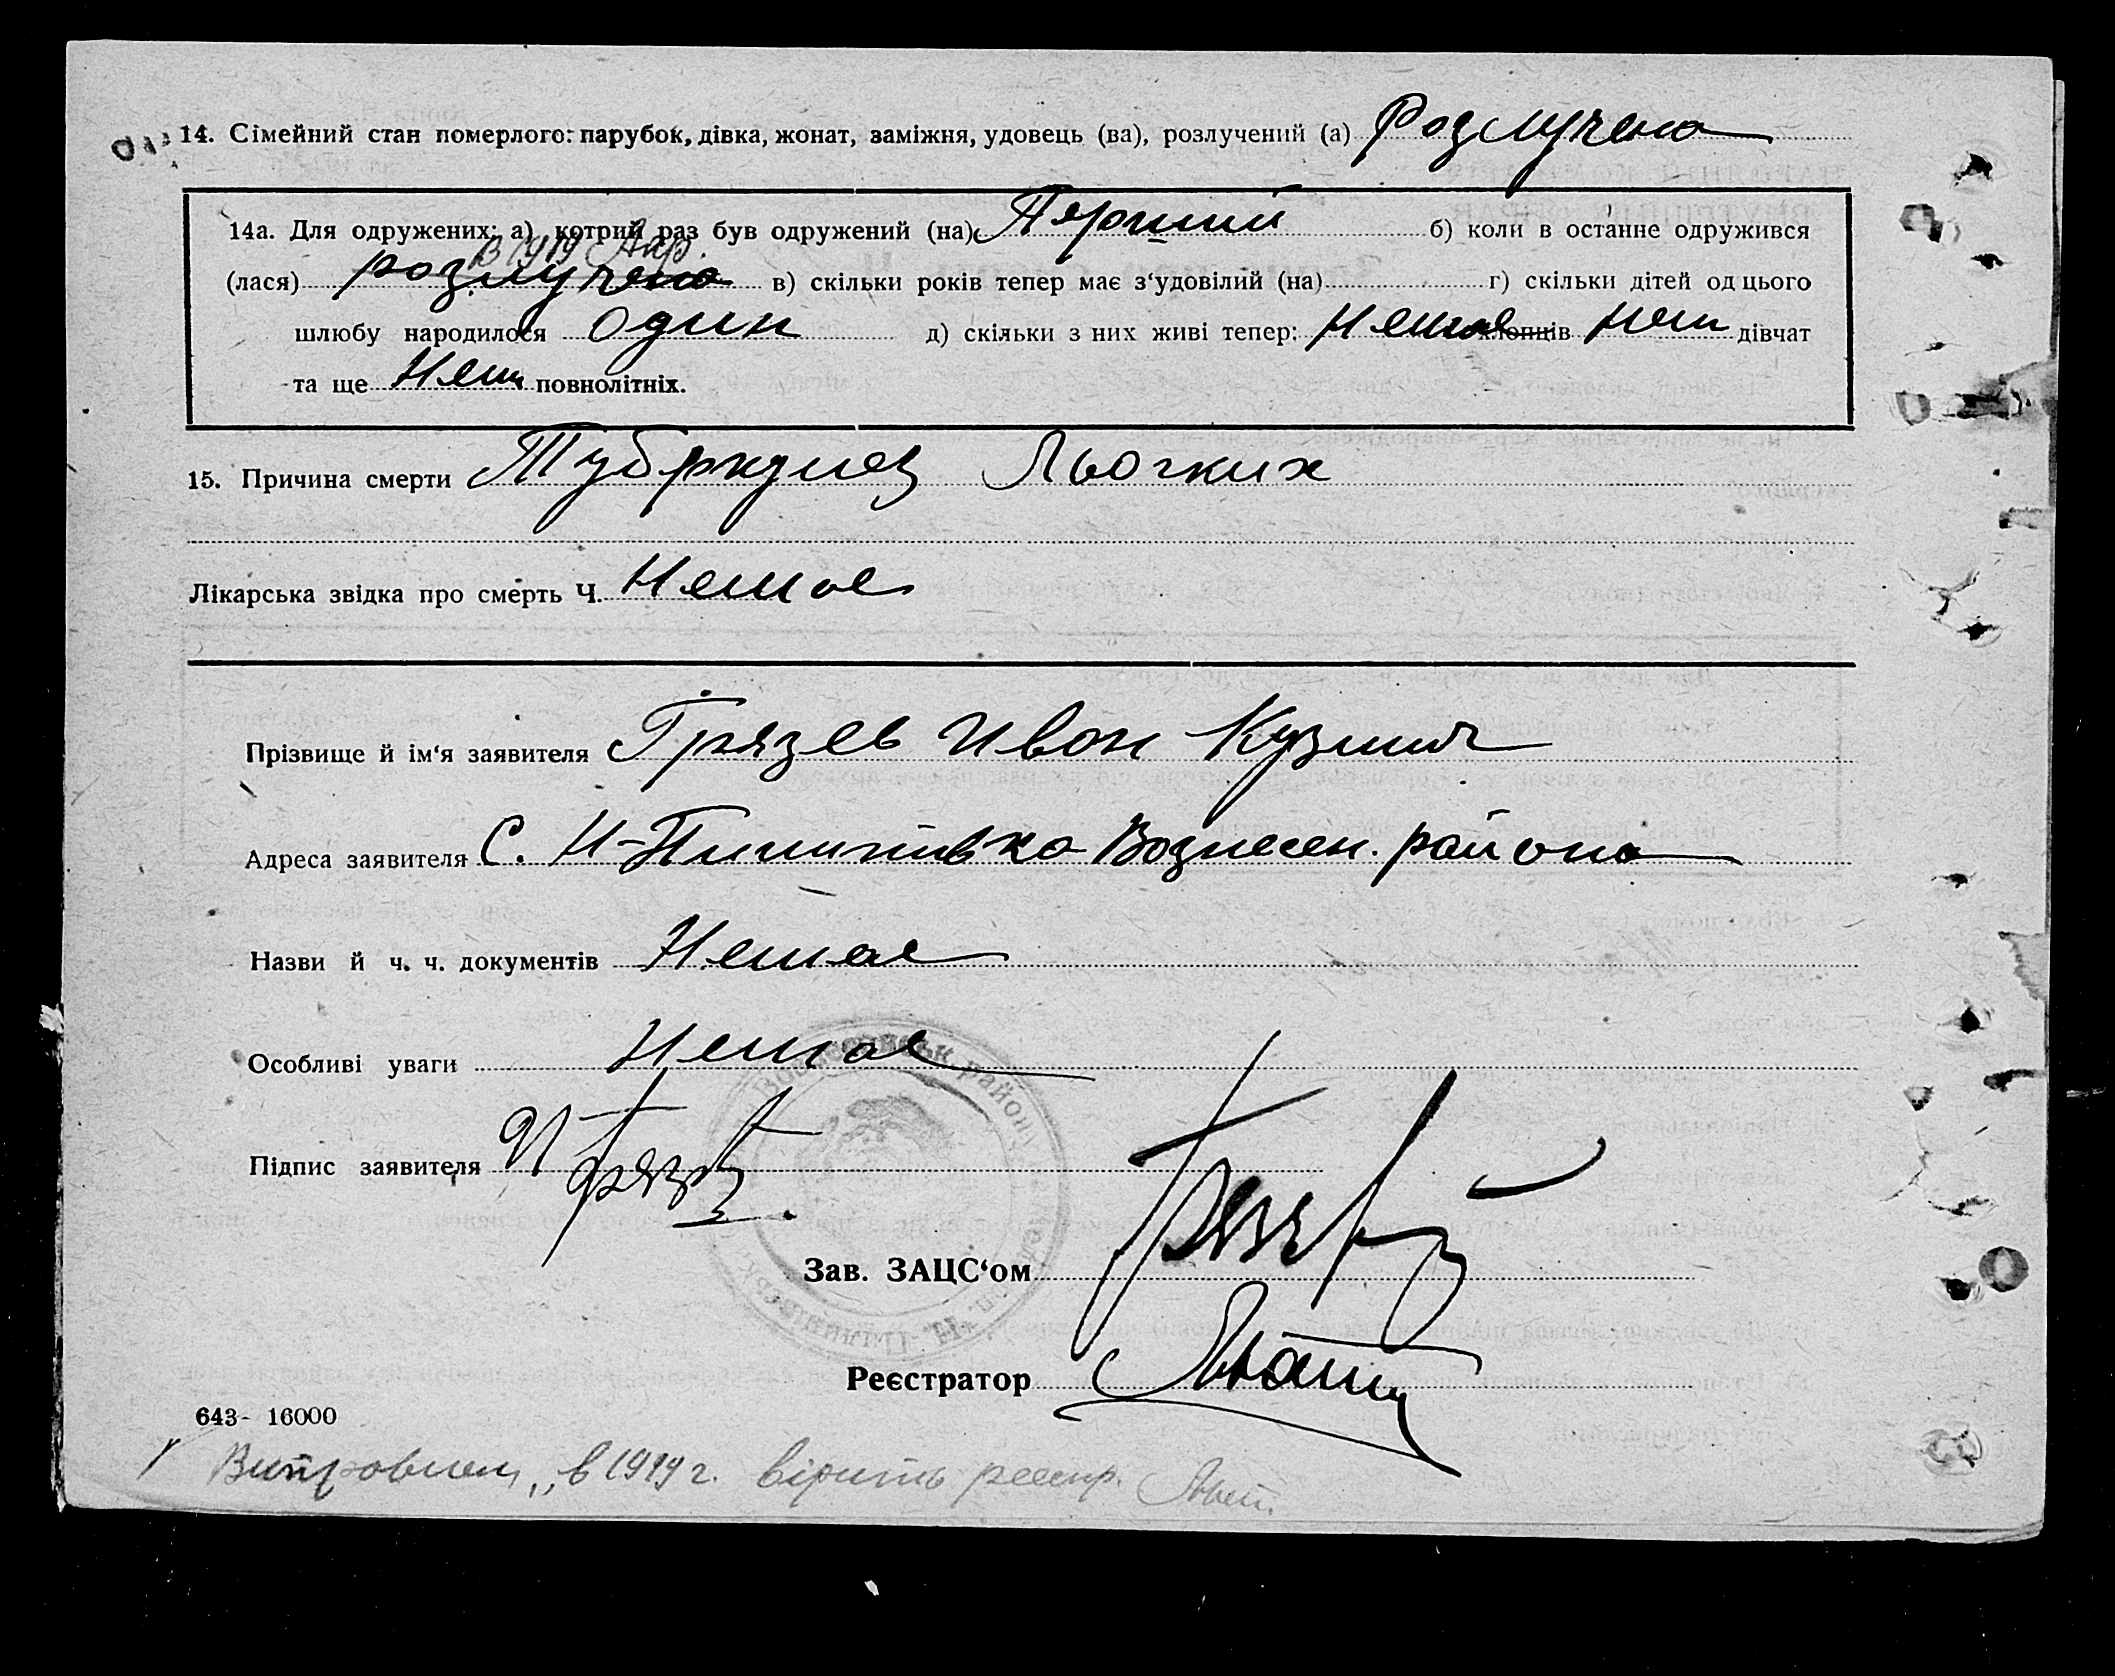 14. Сімейний стан померлого: парубок, дівка, жонат, заміжня, удовець (ва), розлучений (а) Розлучена
14а. Для одружених: а) котрий раз був одружений (на) Перший б) коли в останне одружився
в 1919
(лася) розлучена в) скільки років тепер має з‘удовілий (на) г) скільки дітей од цього
шлюбу народилося Один д) скільки з них живі тепер: Немає хлопців Нем дівчат
та ще Нем повнолітніх.
15. Причина смерти Тубркульоз Льогких
Лікарська звідка про смерть Ч. Немає
Прізвище й ім‘я заявителя Грязев Иван Кузмич
Адреса заявителя С. Н- Вознесен. района
Назви й ч. ч. документів Немає
Особливі уваги Немає
Підпис заявителя И Грязев
Зав. ЗАЦС‘ом
Реєстратор
643- 16000
в 1919 г. вірить реестр.
району